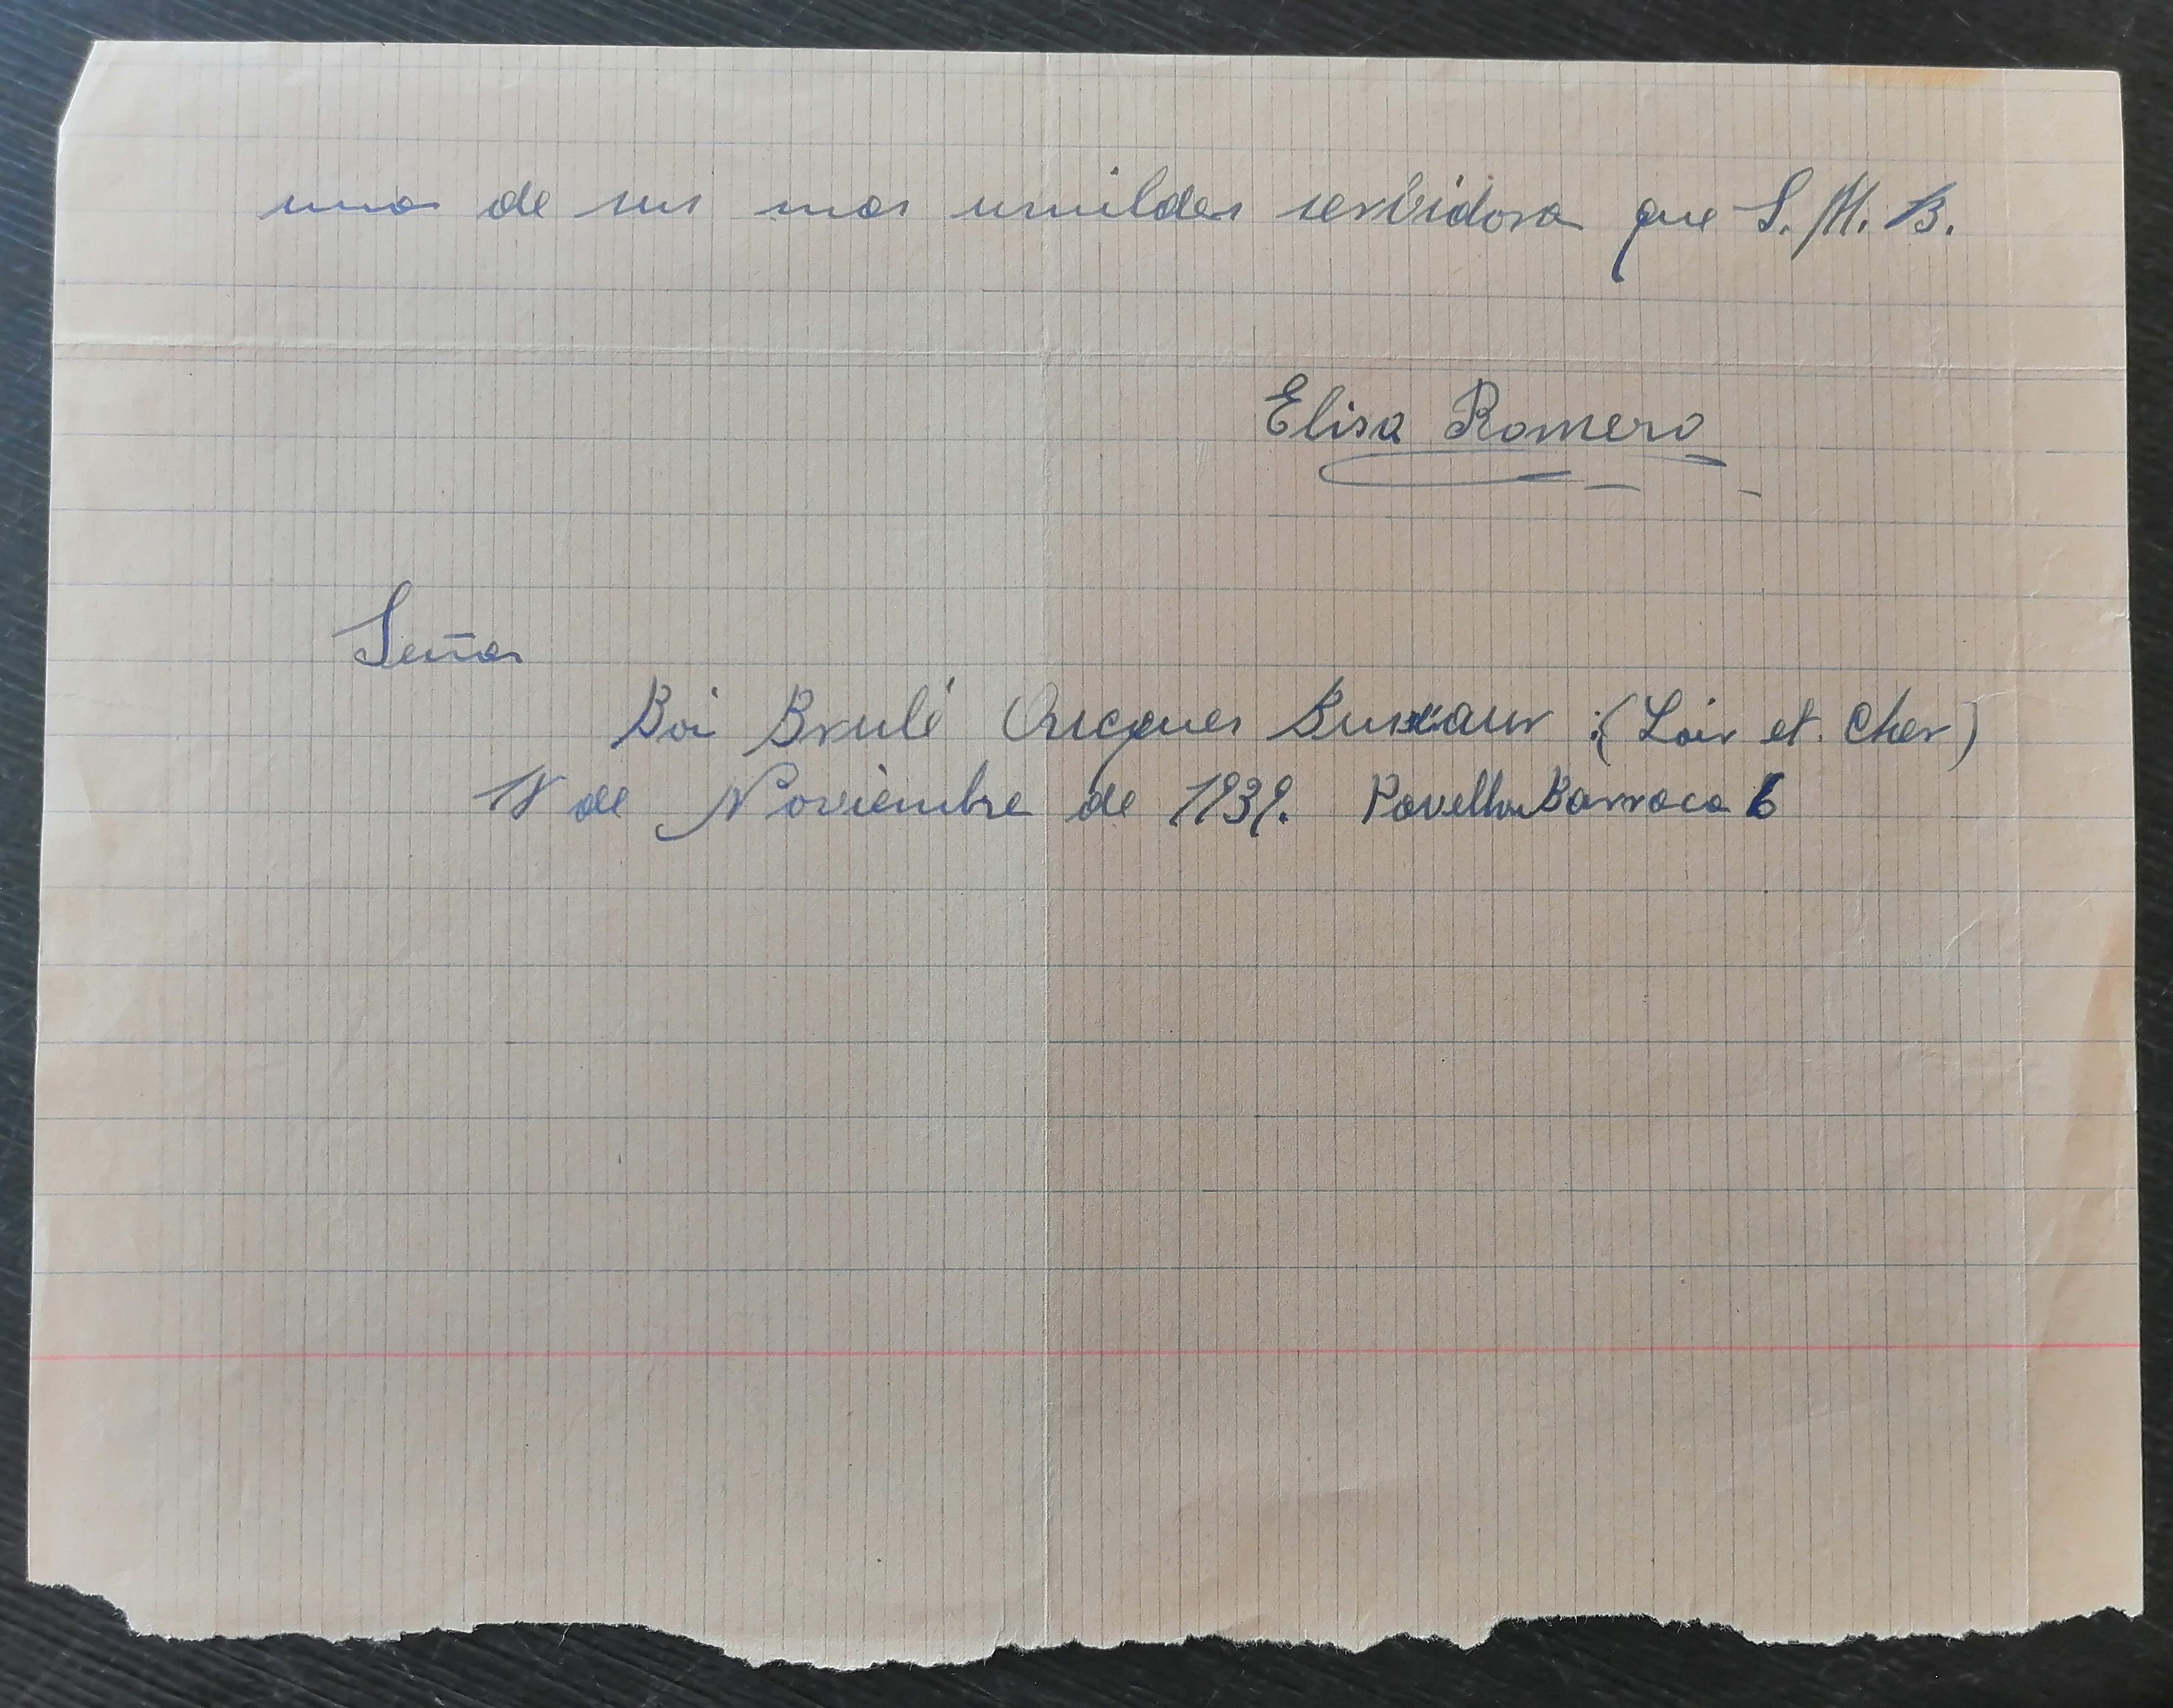 una de sus mas umildes serbidora que S. M. B.
Elisa Romero
Señas
Boi Brulé Oucques Bureaux (Loir et. Cher)
18 de Noviembre de 1939. Pavellon Barraca 6